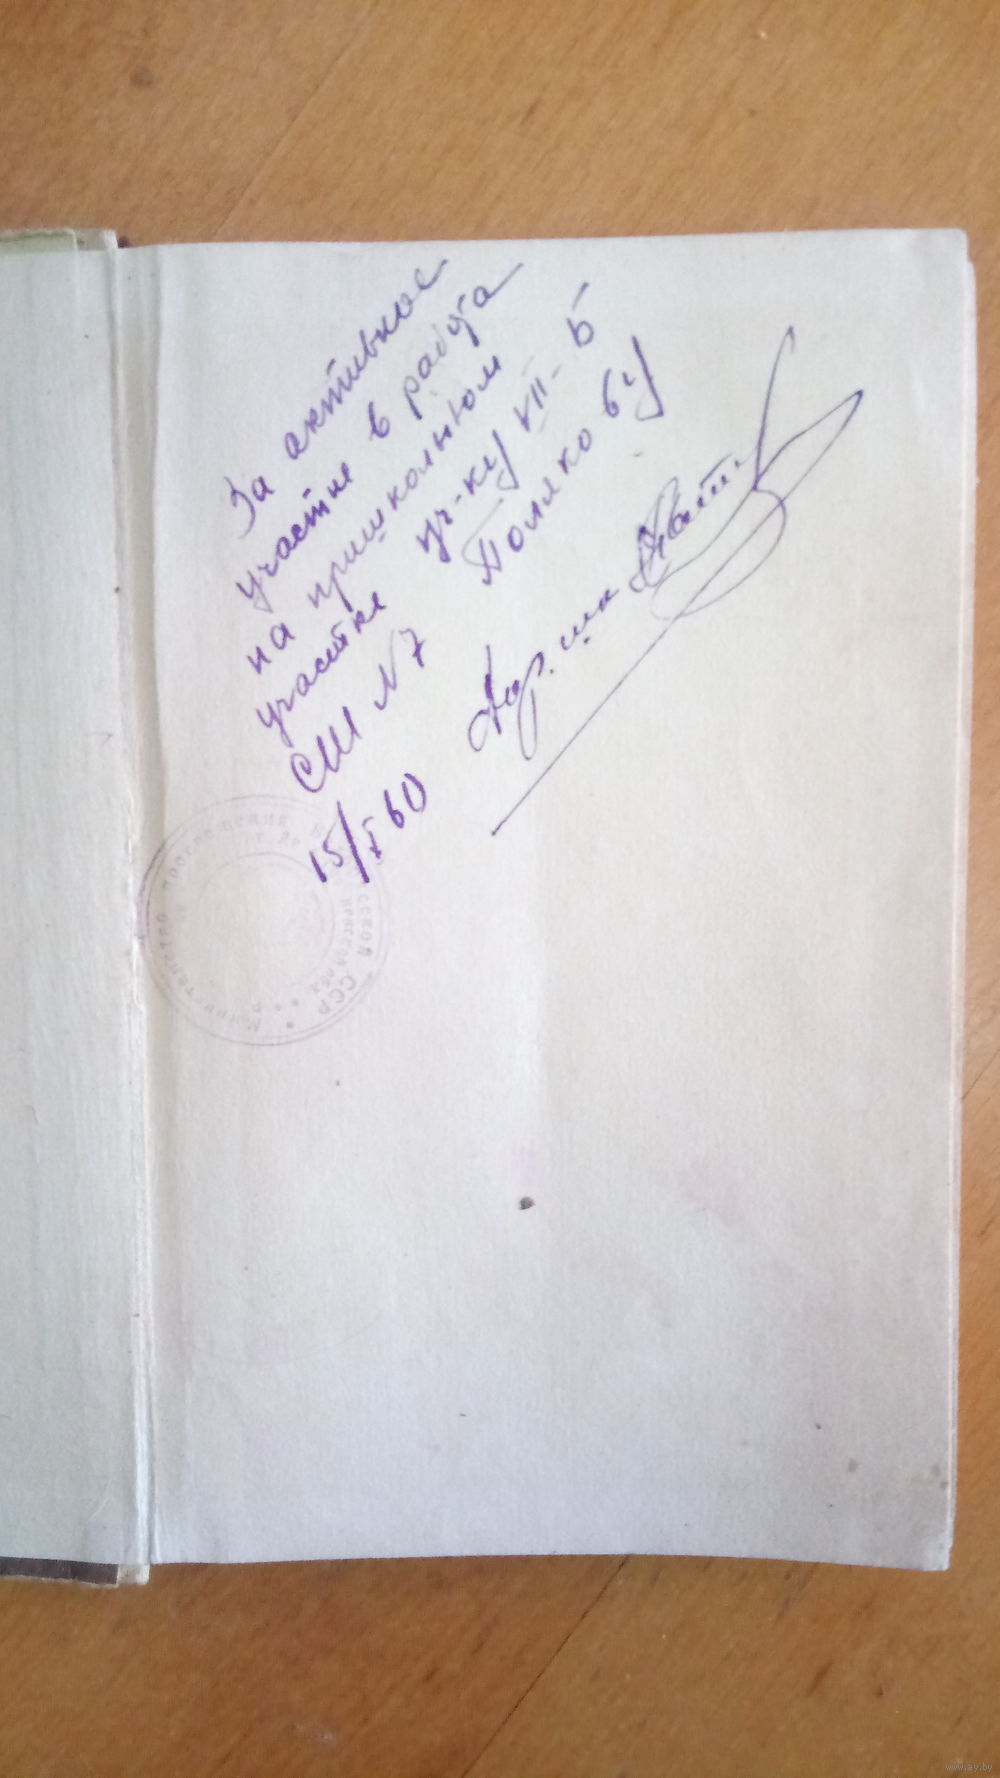 За активное
участие в работа
на пришкольном
участке уч-ку VII-Б
СШ N7 Полякову
15/X 60 Дир. шк
Министерство просвещения ССР
www.ay.by